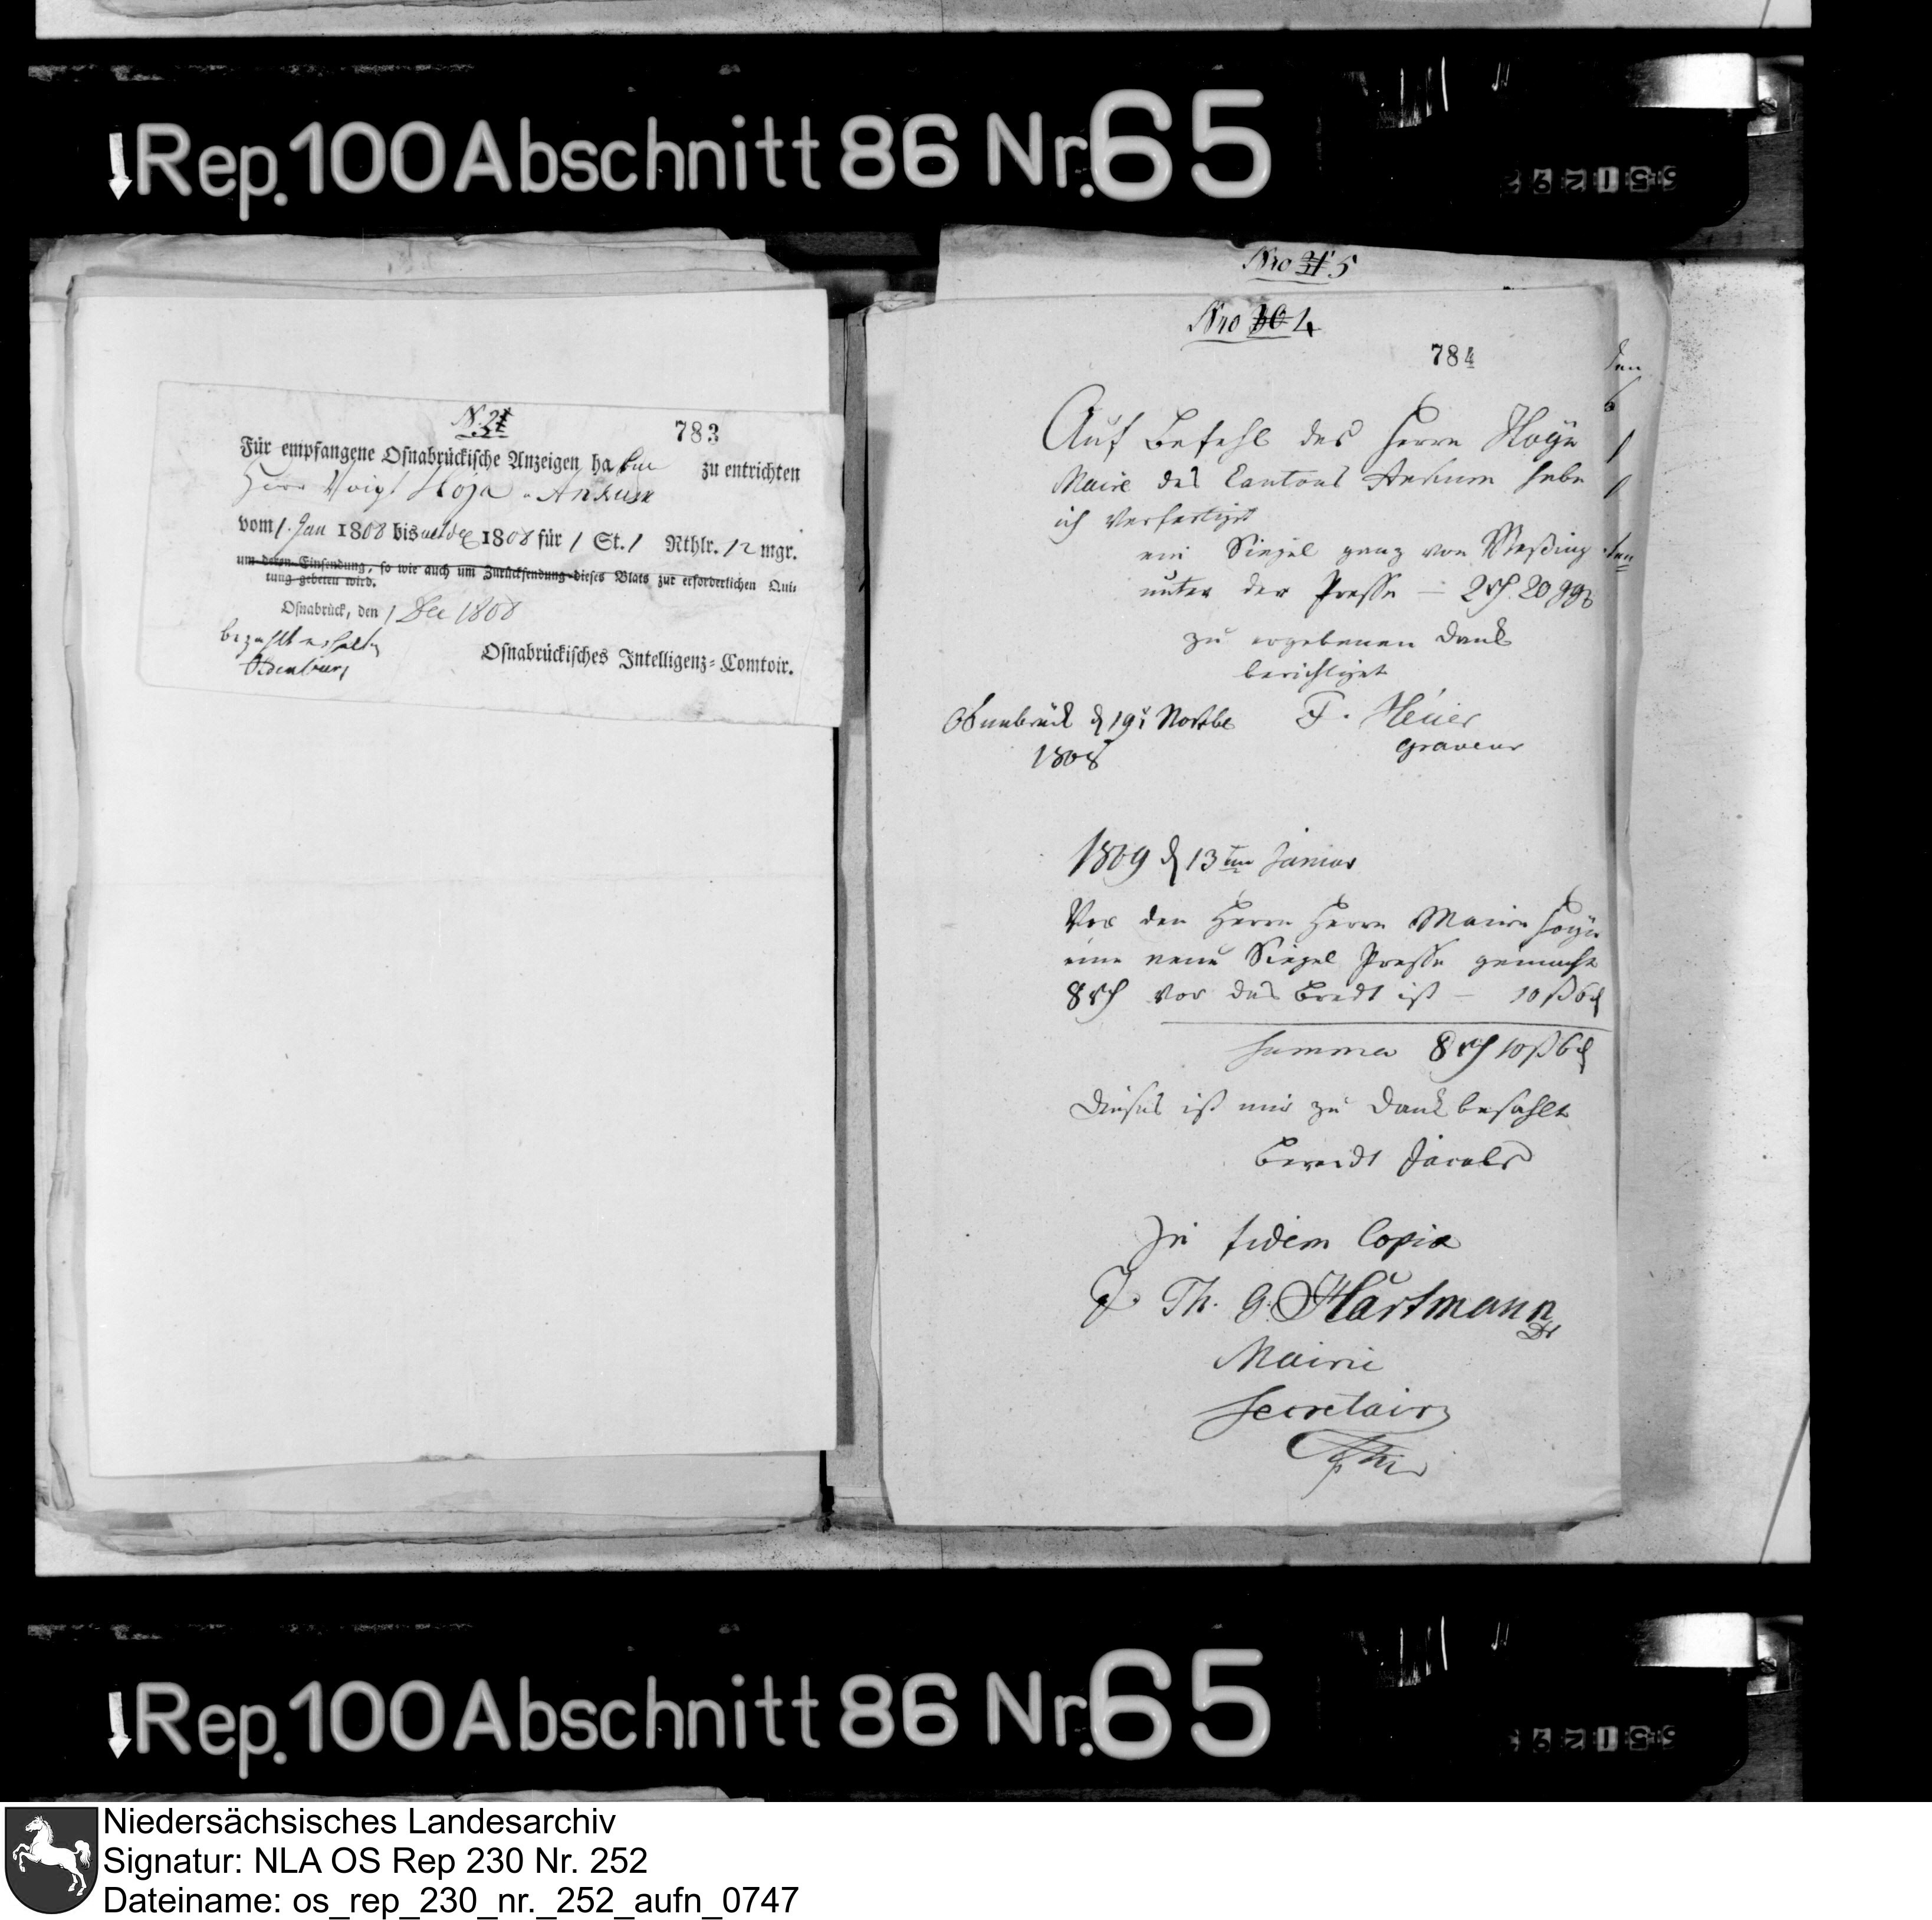 Rep. 100 Abschnitt 86 Nr. 65
N. 21
783
Für empfangene Osnabrückische Anzeigen haben zu entrichten
Herr Voigt Hoja Ankum
vom 1. Jan 1808 bis ult. Dec 1808 für 1 St. 1 Rthlr. 12 mgr.
um deren Einsendung, so wie auch um Zurücksendung dieses Blats zur erforderlichen Qui-
tung gebeten wird.
Osnabrück, den 1 Dec 1808
bezahlt erhalten
Osnabrückisches Intelligenz-Comtoir.
Nro 31 5
Nro 30 4
784
Auf Befehl des Herrn Hoÿe
Maire des Cantons Ankum habe
ich verfertigt
ein Siegel ganz von Meßing
unter der Presse – 2 rh 20 ggr
zu ergebenen Dank
berichtiget
Osnabrück d 19t Novbr
1808
F. Heuer
graveur
1809 d 13ten Januar
Vor den Herrn Herrn Maire Hoÿe
eine neue Siegel Presse gemacht
8 rh vor das Bredt ist – 10 ß 6 d
Summa 8 rh 10 ß 6 d
Dieses ist mir zu Dank besahlt
Berendt Jacobs
In fidem Copiæ
J. Th. G. Hartmann Dr
Mairie
Secretair
Rep. 100 Abschnitt 86 Nr. 65
Niedersächsisches Landesarchiv
Signatur: NLA OS Rep 230 Nr. 252
Dateiname: os_rep_230_nr._252_aufn_0747